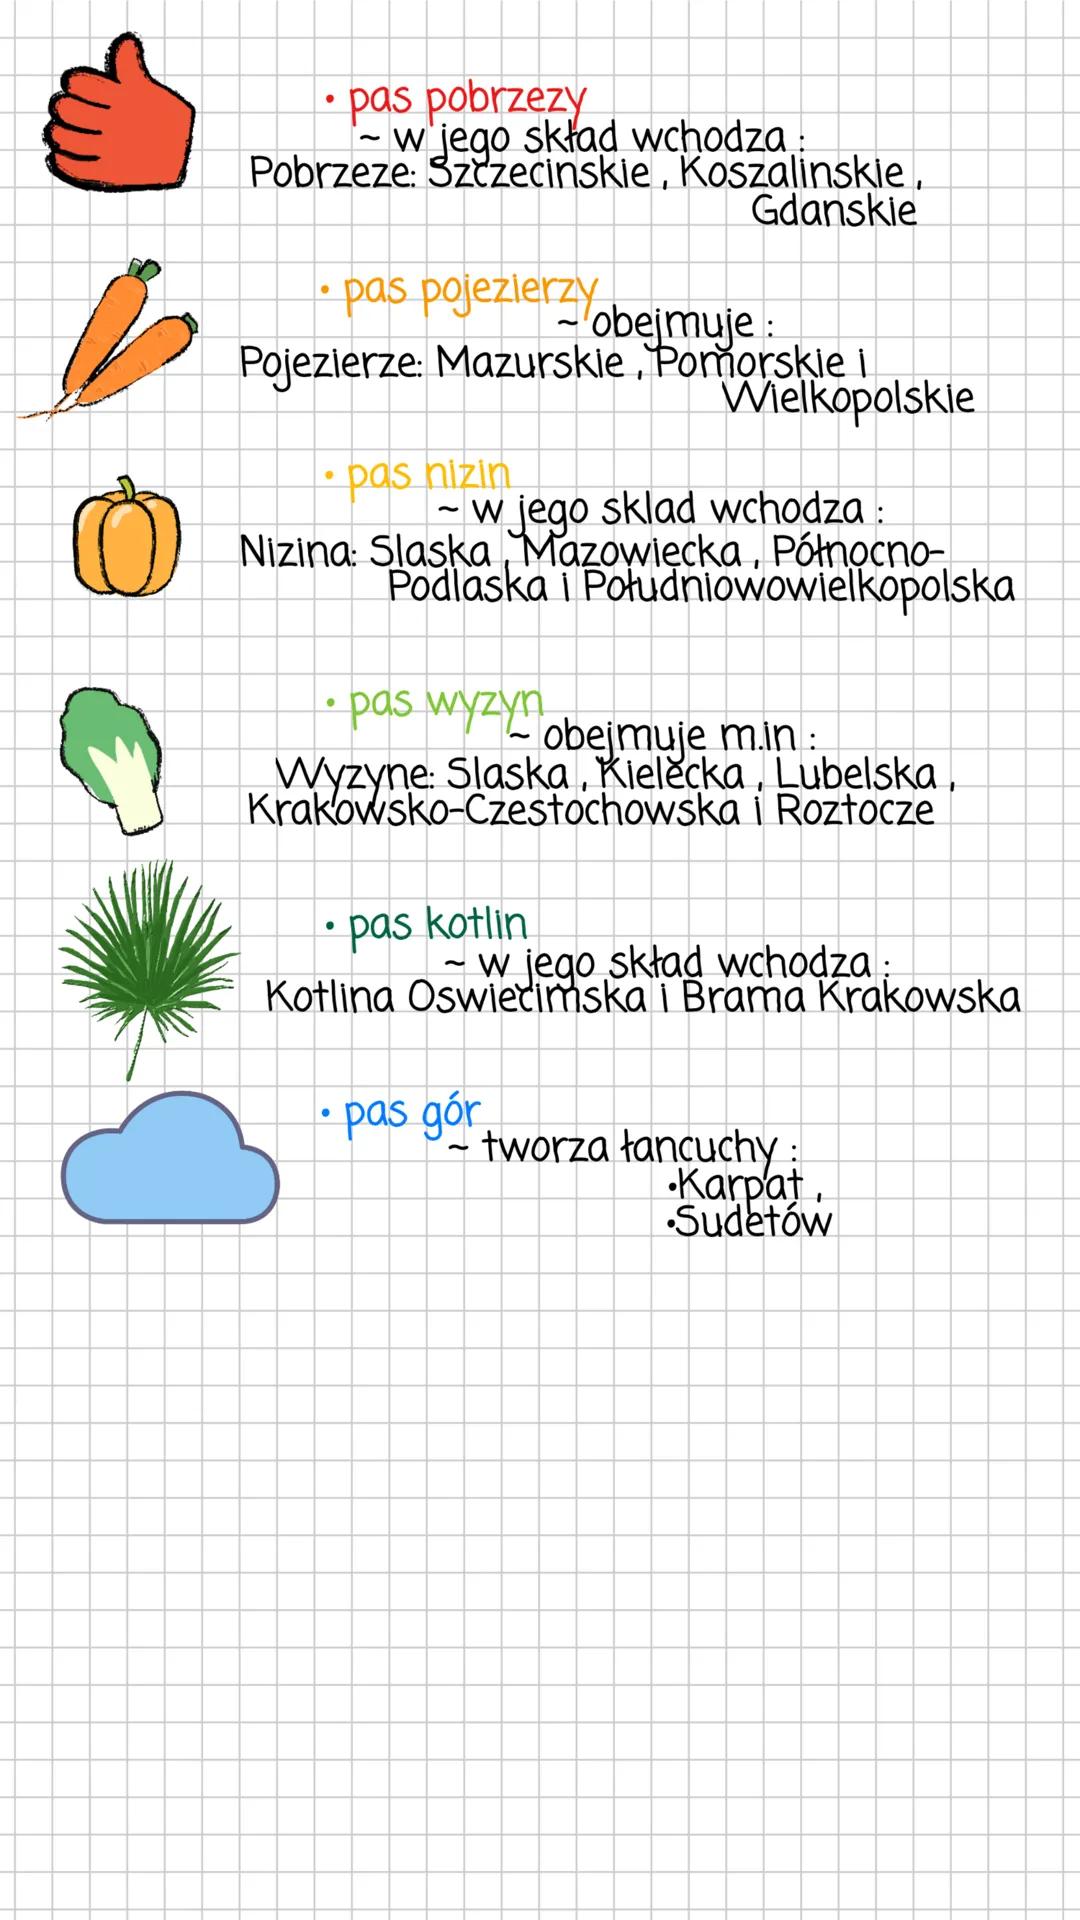 • pas pobrzezy
~ w jego skład wchodza :
Pobrzeze: Szczecinskie , Koszalinskie ,
Gdanskie
• pas pojezierzy
~ obejmuje :
Pojezierze: Mazurskie , Pomorskie i
Wielkopolskie
• pas nizin
~ w jego sklad wchodza :
Nizina: Slaska , Mazowiecka , Północno-
Podlaska i Południowowielkopolska
• pas wyzyn
~ obejmuje m.in :
Wyzyne: Slaska , Kielecka , Lubelska ,
Krakowsko-Czestochowska i Roztocze
• pas kotlin
~ w jego skład wchodza :
Kotlina Oswiecimska i Brama Krakowska
• pas gór
~ tworza łancuchy :
•Karpat ,
•Sudetów